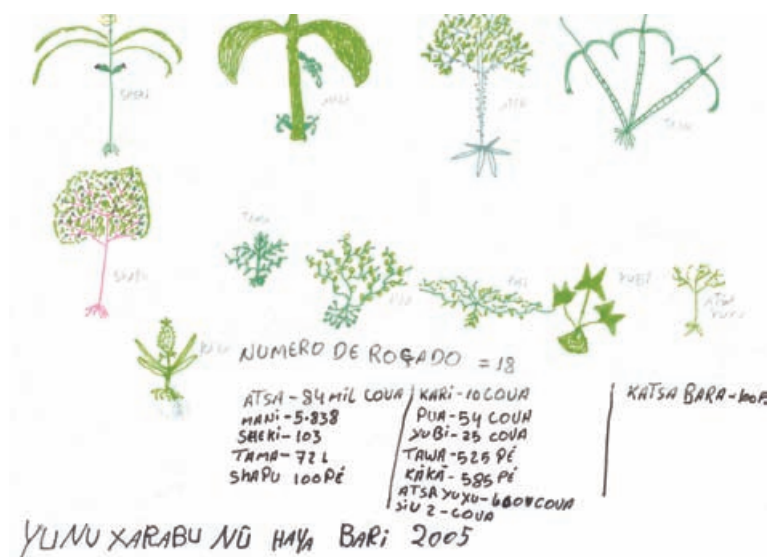 SHEKI
MANI
ATSA
TAWA
SHAPU
TAMA
PUA
KARI
YUBI
ATSA
YUXU
KÃKÃ
NUMERO DE ROÇADO = 18
ATSA - 84 MIL COVA
MANI - 5.838
SHEKI - 103
TAMA - 72 L
SHAPU 100 PÉ
KARI - 10 COVA
PUA - 54 COVA
YUBI - 25 COVA
TAWA - 525 PÉ
KÃKÃ - 585 PÉ
SIU 2 - COVA
KATSA BARA - 100 PÉ
YUNU XARABU NŨ HAYA BARI 2005